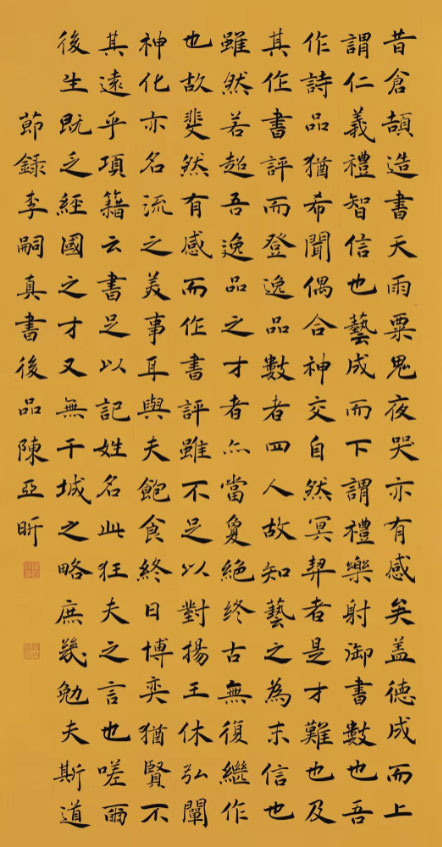 昔倉頡造書天雨粟鬼夜哭亦有感矣盖德成而上
謂仁義禮智信也藝成而下謂禮樂射御書數也吾
作詩品猶希聞偶合神交自然冥契者是才難也及
其作書評而登逸品數者四人故知藝之為末信也
雖然若超吾逸品之才者亦當夐絕終古無復繼作
也故斐然有感而作書評雖不足以對揚王休弘闡
神化亦名流之美事耳與夫飽食終日博奕猶賢不
其遠乎項籍云書足以記姓名此狂夫之言也嗟爾
後生既乏經國之才又無干城之略庶幾勉夫斯道
節錄李嗣真書後品陳亞昕